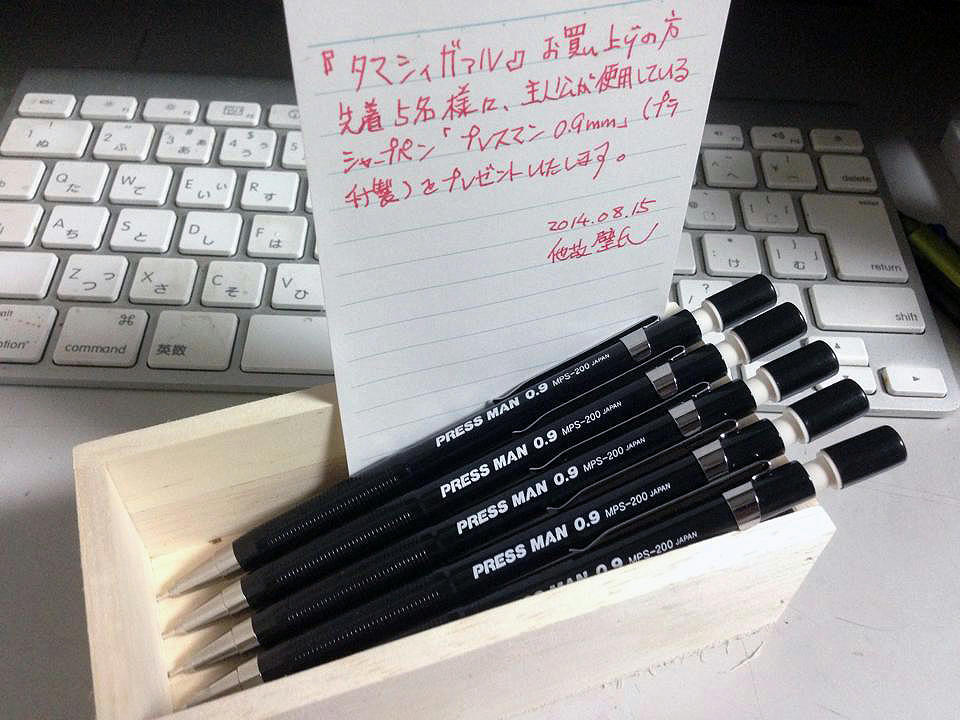 『タマシィガアル』お買い上げの方
先着5名様に、主人公が使用している
シャープペン「プレスマン0.9mm」(プラ
付製)をプレゼントいたします。
2014.08.15
PRESS MAN 0.9 MPS-200 JAPAN
PRESS MAN 0.9 MPS-200 JAPAN
PRESS MAN 0.9 MPS-200 JAPAN
PRESS MAN 0.9 MPS-200 JAPAN
MAN 0.9 MPS-200 JAPAN
esc
Q た
W て
E い ぃ
R す
A ち
S と
D し
F は
Z つ っ
X さ
C そ
V ひ
command ⌘
英数
option
delete
enter
return
shift